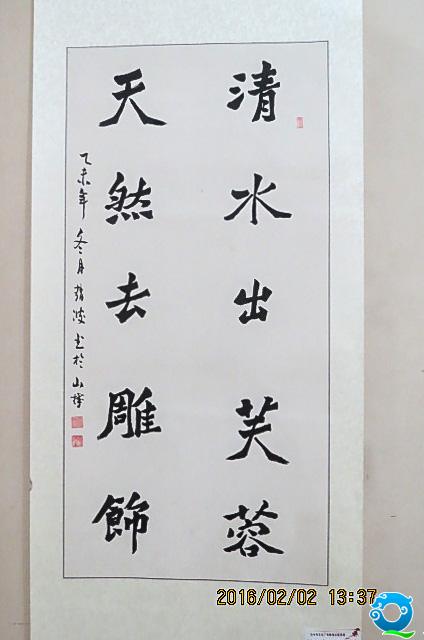 清水出芙蓉
天然去雕飾
乙未年冬月 书於山
2016/02/02 13:37